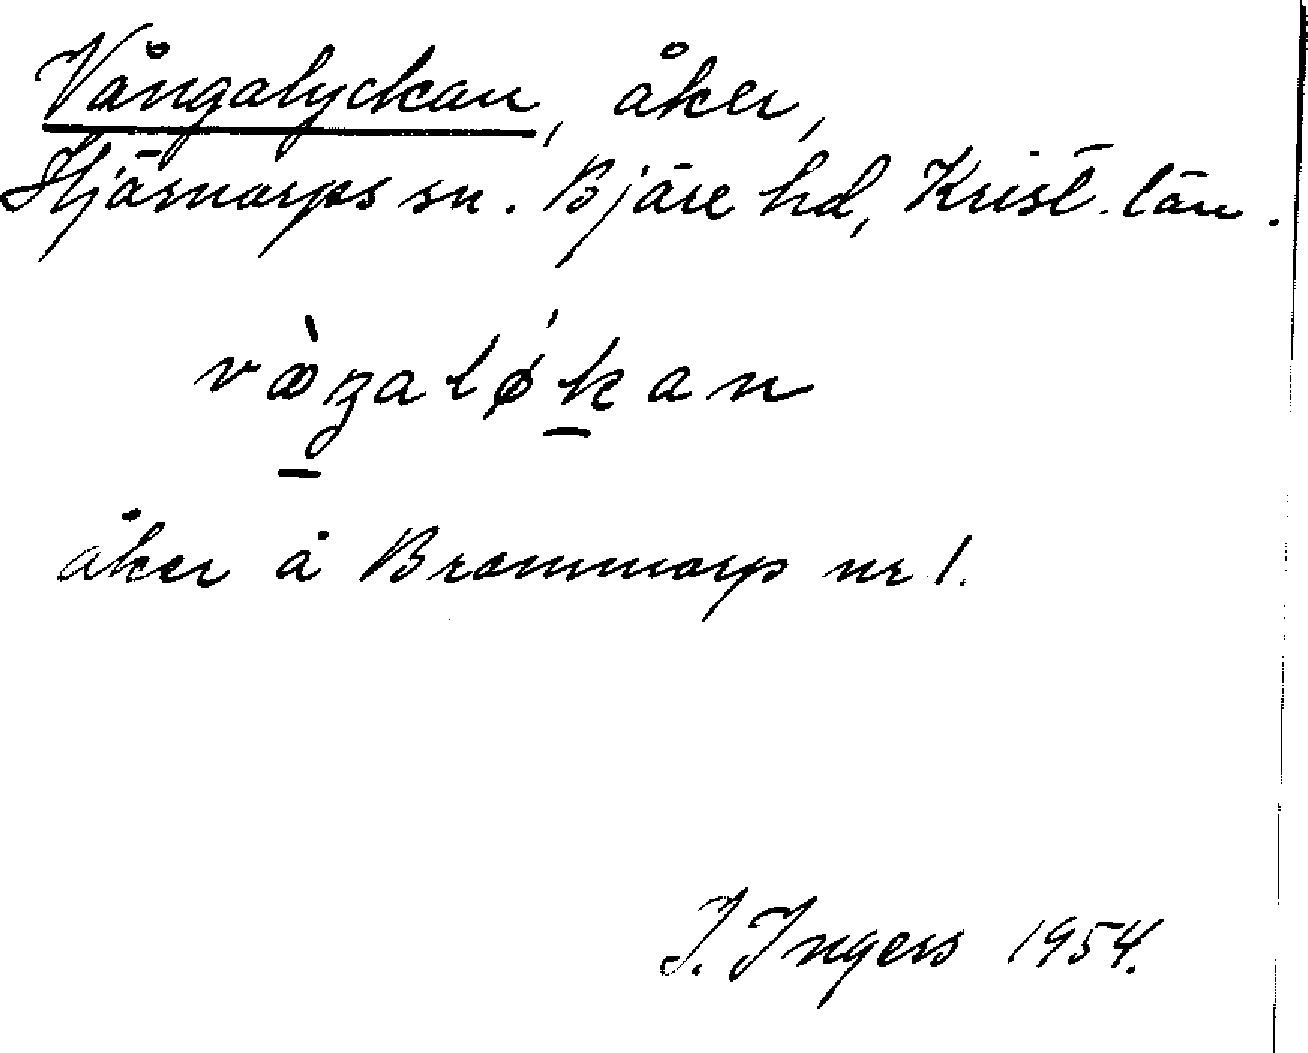 Vångalyckan, åker,
Hjärnarps sn. Bjäre hd, Krist. län.
åker å Brammarp nr 1.
I. Ingers 1954.